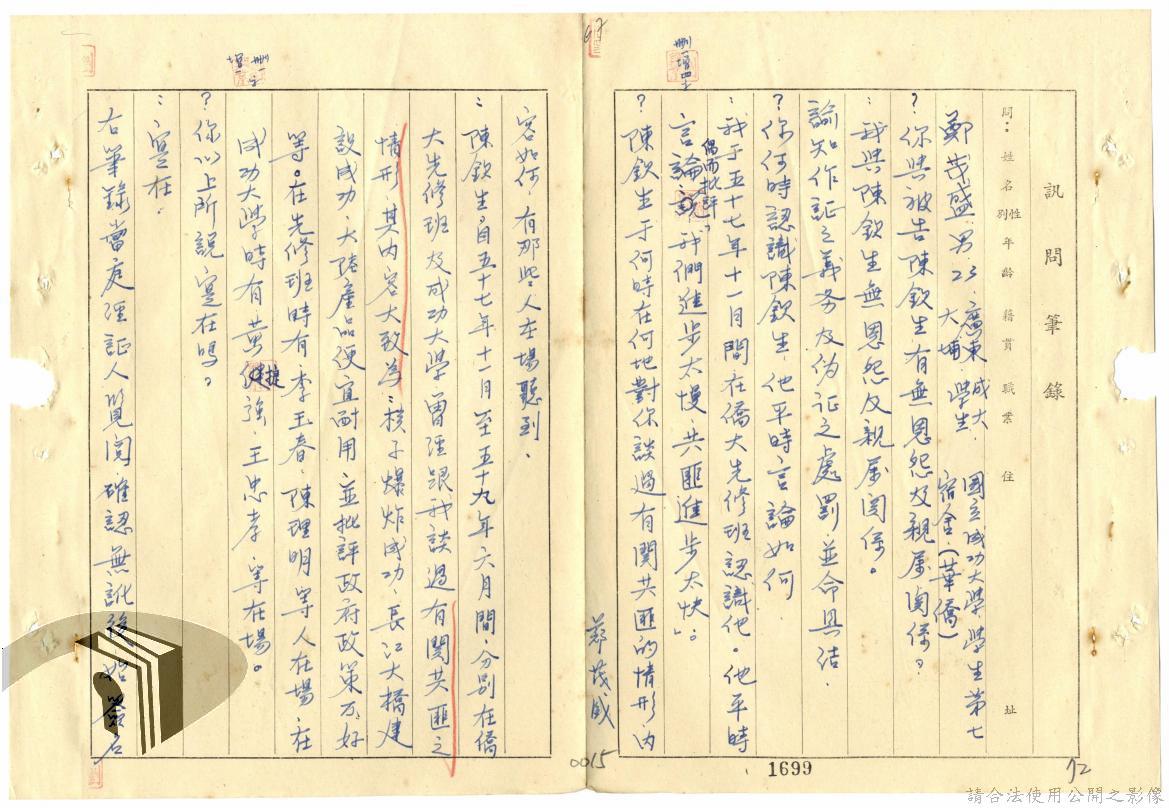 訊問筆錄
問：姓名 性別 年齡 籍貫 職業 住址
鄭茂盛 男 23 廣東大埔 成大學生 國立成功大學學生第七宿舍（華僑）
？你與被告陳欽生有無恩怨及親屬関係？
：我與陳欽生無恩怨及親屬関係。
諭知作証之義务及伪证之處罰並命具结
？你何時認識陳欽生 他平時言論如何
：我于五十七年十一月間在僑大先修班認識他。他平時
偶而批評，
言論 我們進步太慢 共匪進步太快」。
？陳欽生于何時在何地對你談過有関共匪的情形內
刪 增四字
容如何 有那些人在場聽到．
：陳欽生自五十七年十一月至五十九年六月間分别在僑
大先修班及成功大學曾經跟我談過有関共匪之
情形 其内容大致為：核子爆炸成功、長江大橋建
設成功、大陸產品便宜耐用並批評政府政策不好
等。在先修班時有李玉春 陳理明等人在場 在
成功大學時有黃捷強．王忠孝．等在場。
刪一字 增一
？你以上所説寔在嗎？
：寔在．
右筆錄當庭經証人覽閲確認無訛後始簽名
鄭茂盛
0015
1699
72
請合法使用公開之影像